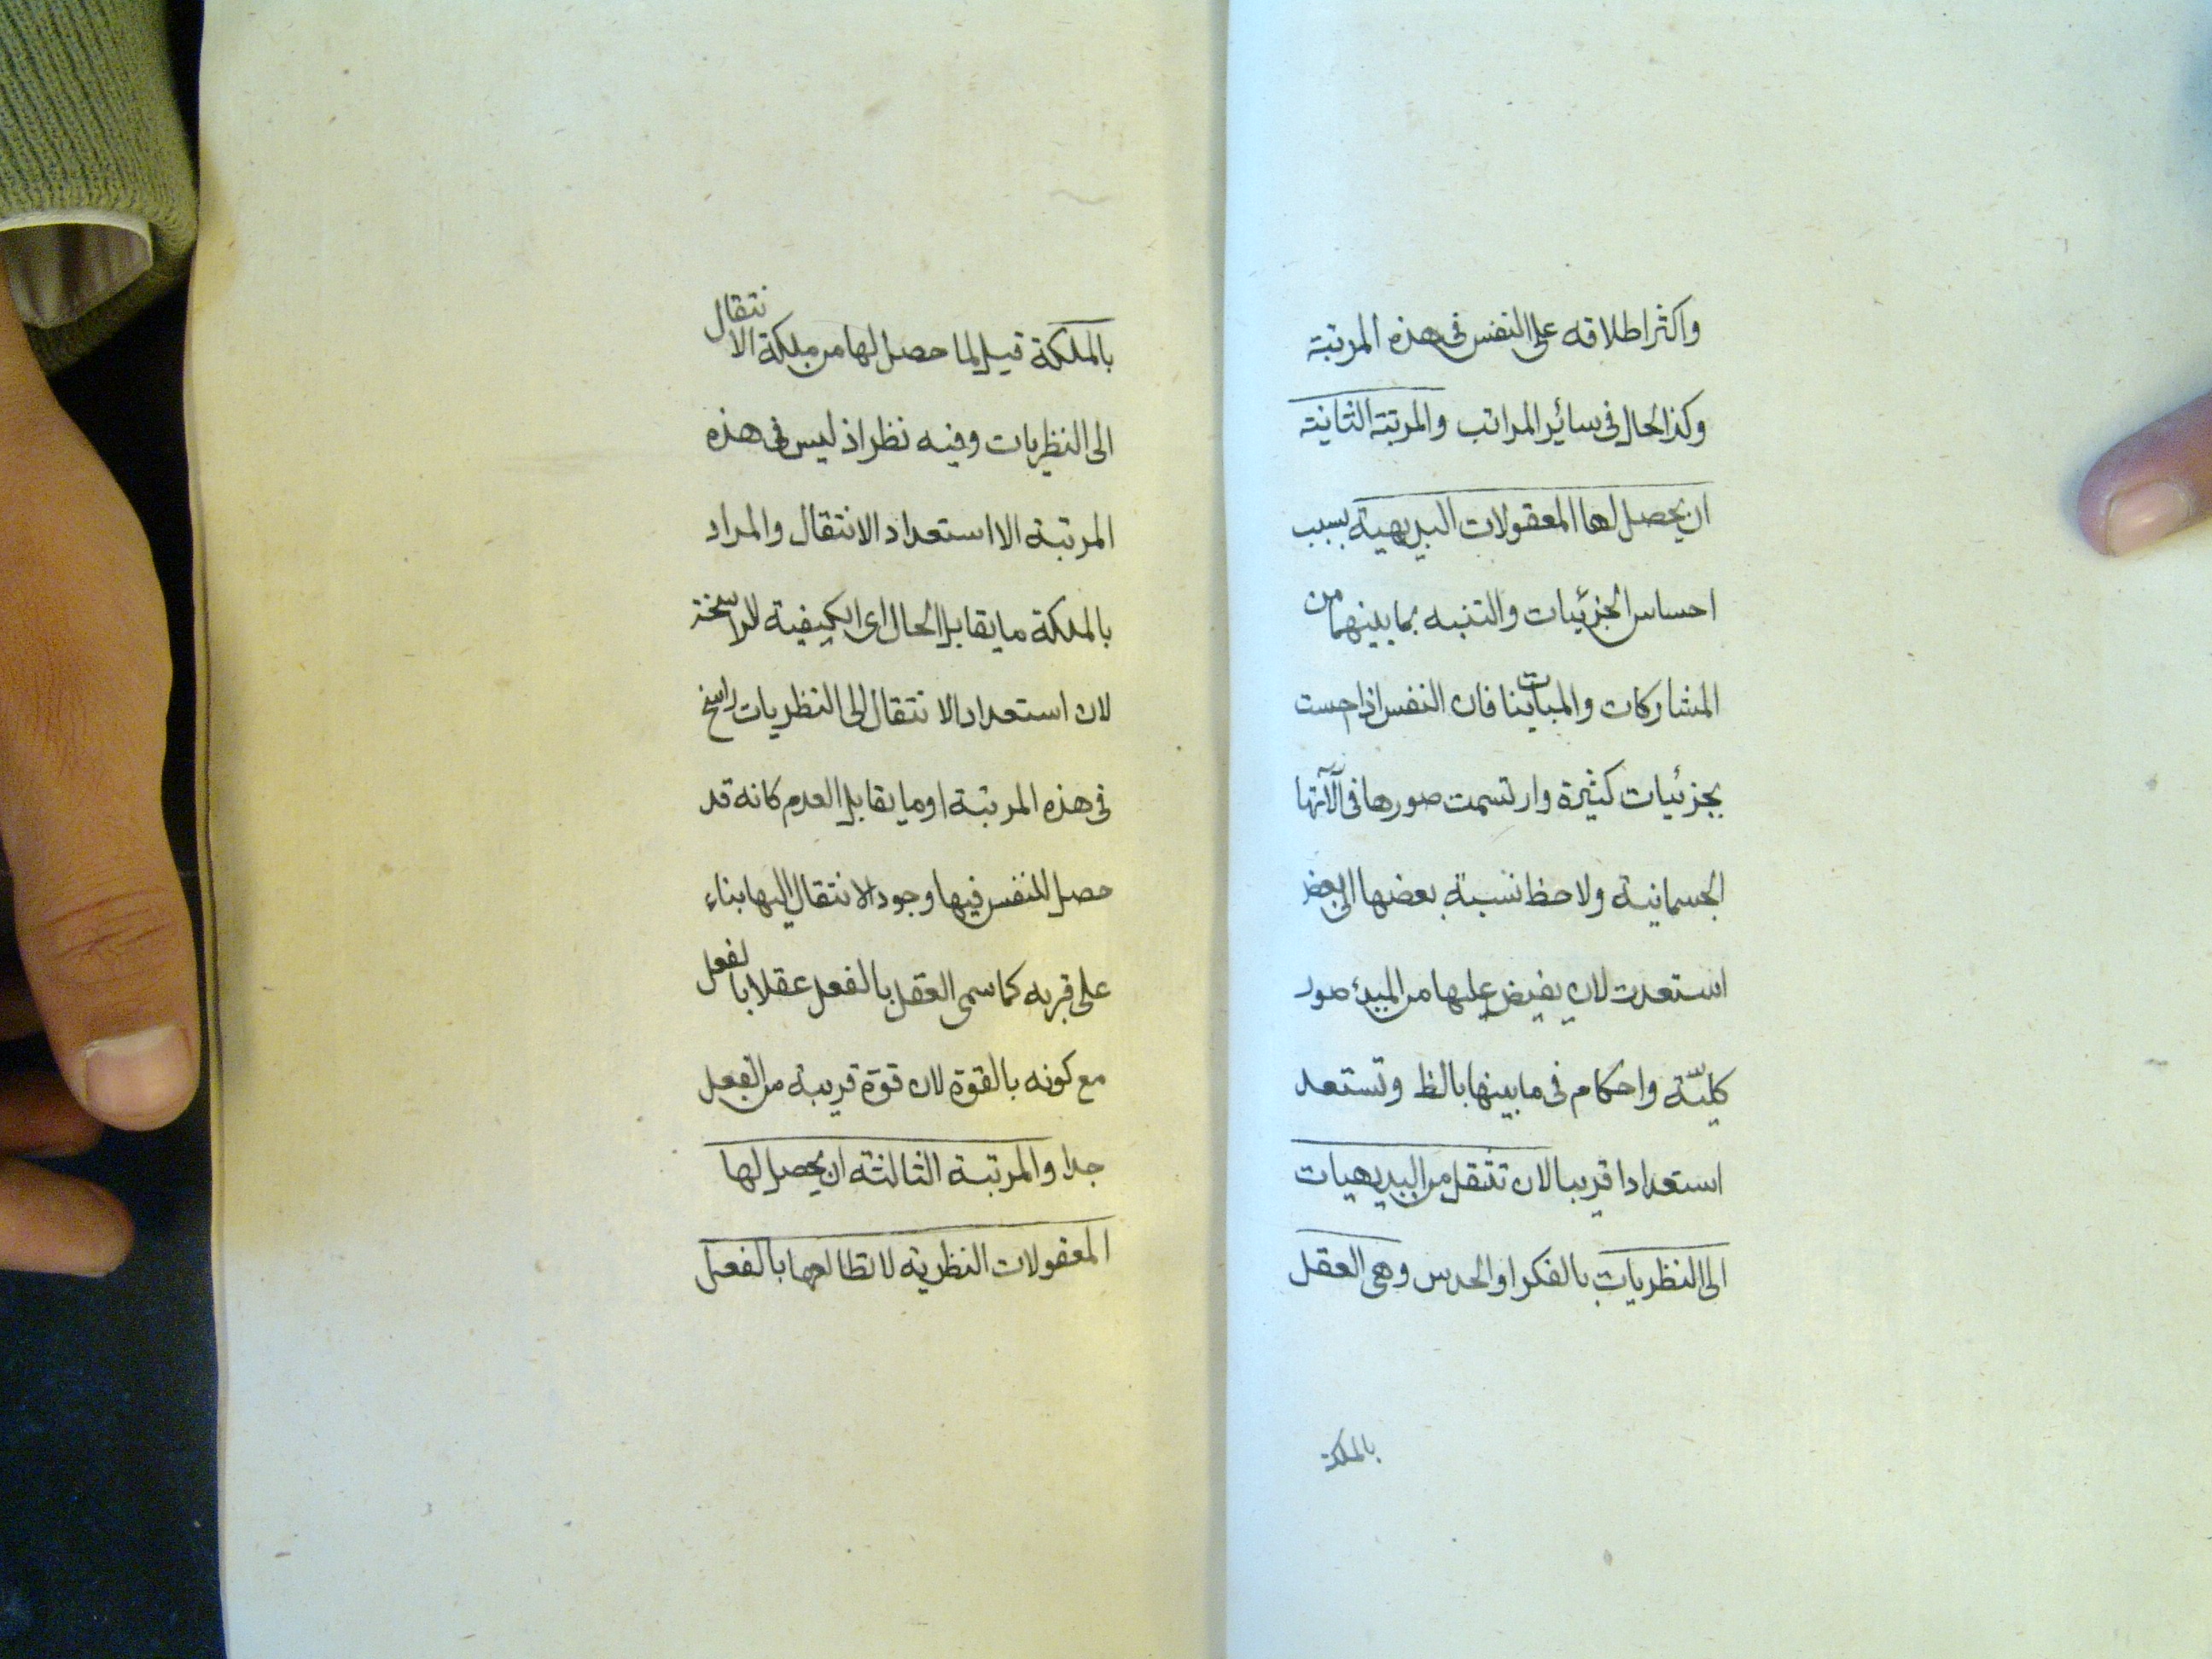 واكثر اطلاقه على النفس فى هذه المرتبة
وكذا الحال فى سائر المراتب والمرتبة الثانية
ان يحصل لها المعقولات البديهية بسبب
احساس الجزئيات والتنبه بما بينهما من
المشاركات والمباينات فان النفس اذا احست
بجزئيات كثيرة وارتسمت صورها فى آلاتها
الجسمانية ولاحظ نسبة بعضها الى بعض
استعدت لان يفيض عليها من المبدء صور
كليّة واحكام فى ما بينها بالظ وتستعد
استعدادا قريبا لان تنتقل من البديهيات
الى النظريات بالفكر او الحدس وهى العقل
بالملكة
بالملكة قيل لما حصل لها من ملكة الانتقال
الى النظريات وفيه نظر اذ ليس فى هذه
المرتبة الا استعداد الانتقال والمراد
بالملكة ما يقابل الحال اى الكيفية الراسخة
لان استعداد الانتقال الى النظريات راسخ
فى هذه المرتبة او ما يقابل العدم كانه قد
حصل للنفس فيها وجود الانتقال اليها بناء
على قربه كما سمى العقل بالفعل عقلا بالفعل
مع كونه بالقوة لان قوة قريبة من الفعل
جدا والمرتبة الثالثة ان يحصل لها
المعقولات النظرية لا تطالعها بالفعل